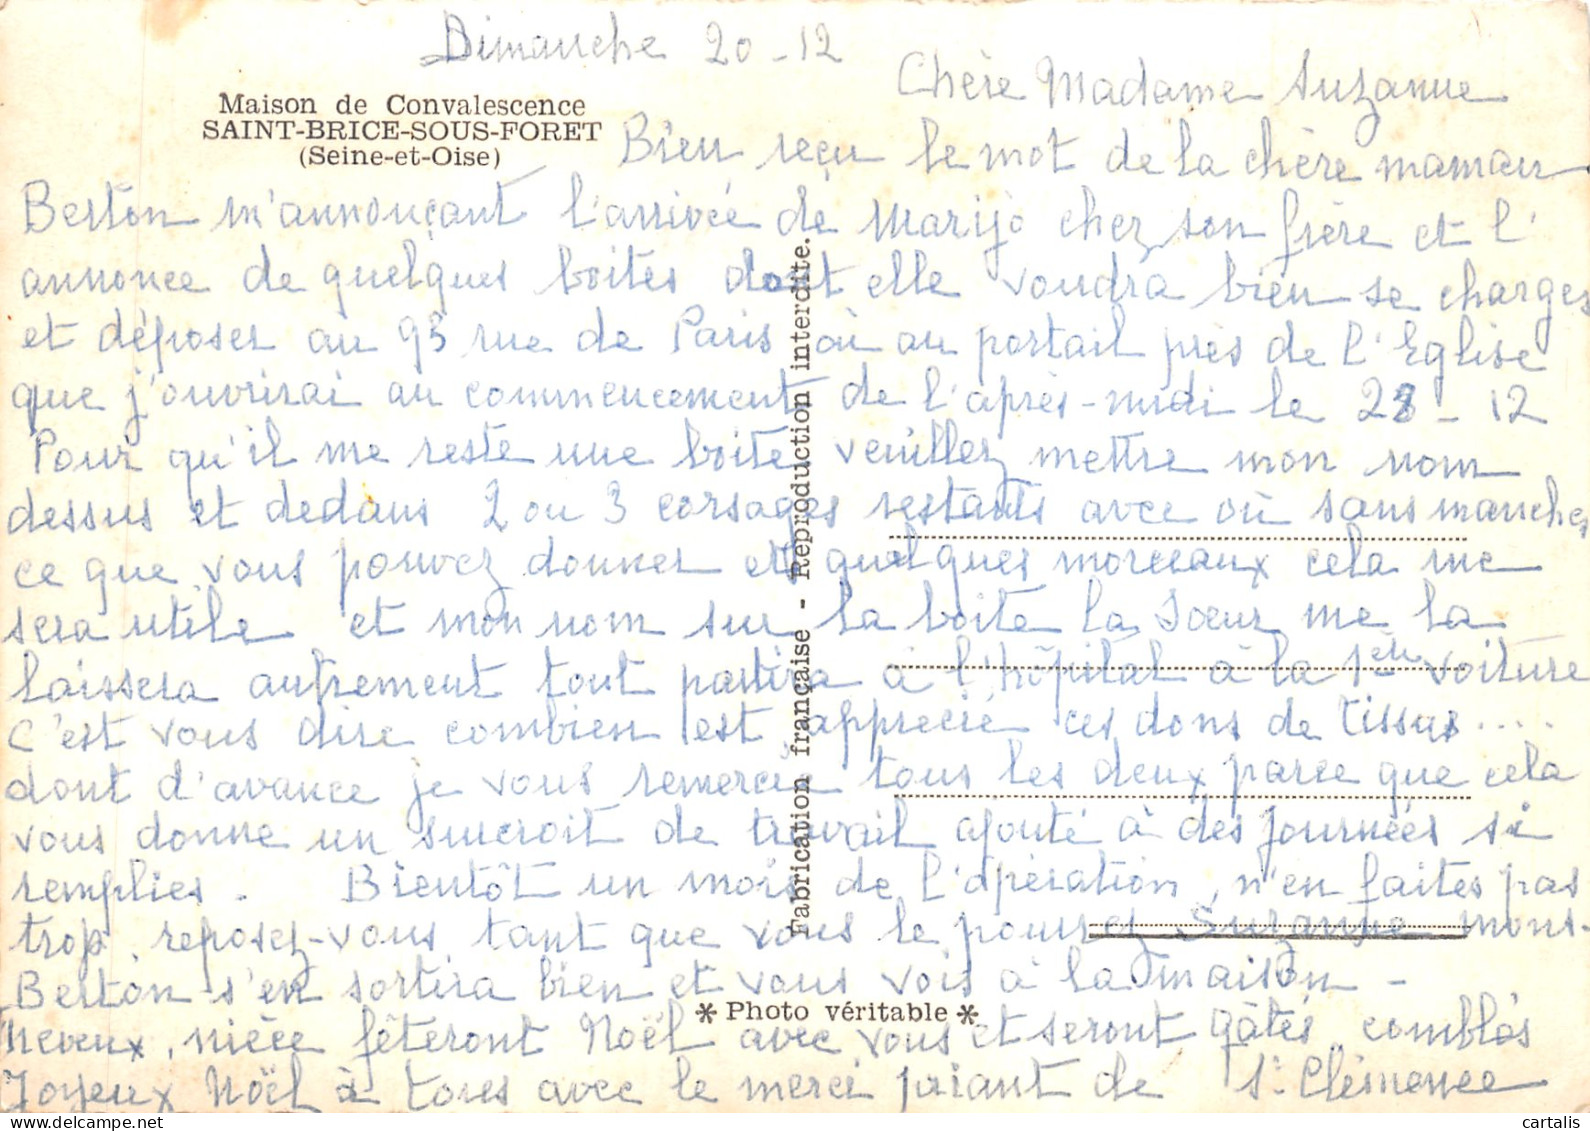 Dimanche 20-12
Maison de Convalescence
SAINT-BRICE-SOUS-FORET
(Seine-et-Oise)
Chère Madame Suzanne
Bien reçu le mot de la chère maman
Berton m'annonçant l'arrivée de Marijo chez son frère et l'
annonce de quelques boites dont elle voudra bien se charger
et déposer au 93 rue de Paris où au portail près de l'Eglise
que j'ouvrirai au commencement de l'après-midi le 28-12
Pour qu'il me reste une boite veuillez mettre mon nom
dessus et dedans 2 ou 3 corsages restants avec où sans manches
ce que vous pouvez donner et quelques morceaux cela me
sera utile et mon nom sur la boite la Soeur me la
laissera autrement tout partira à l'hôpital à la 1ère voiture
C'est vous dire combien est apprecié ces dons de tissus....
dont d'avance je vous remercie tous les deux parce que cela
vous donne un surcroit de travail ajouté à des journées si
remplies. Bientôt un mois de l'opération, n'en faites pas
trop, reposez-vous tant que vous le pourrez Suzanne Mons-
Berton s'en sortira bien et vous vois à la maison -
Neveux, nièce fêteront Noël avec vous et seront gâtés, comblés
Joyeux Noël à tous avec le merci priant de Sr Clémence
Fabrication française - Reproduction interdite.
* Photo véritable *
cartalis